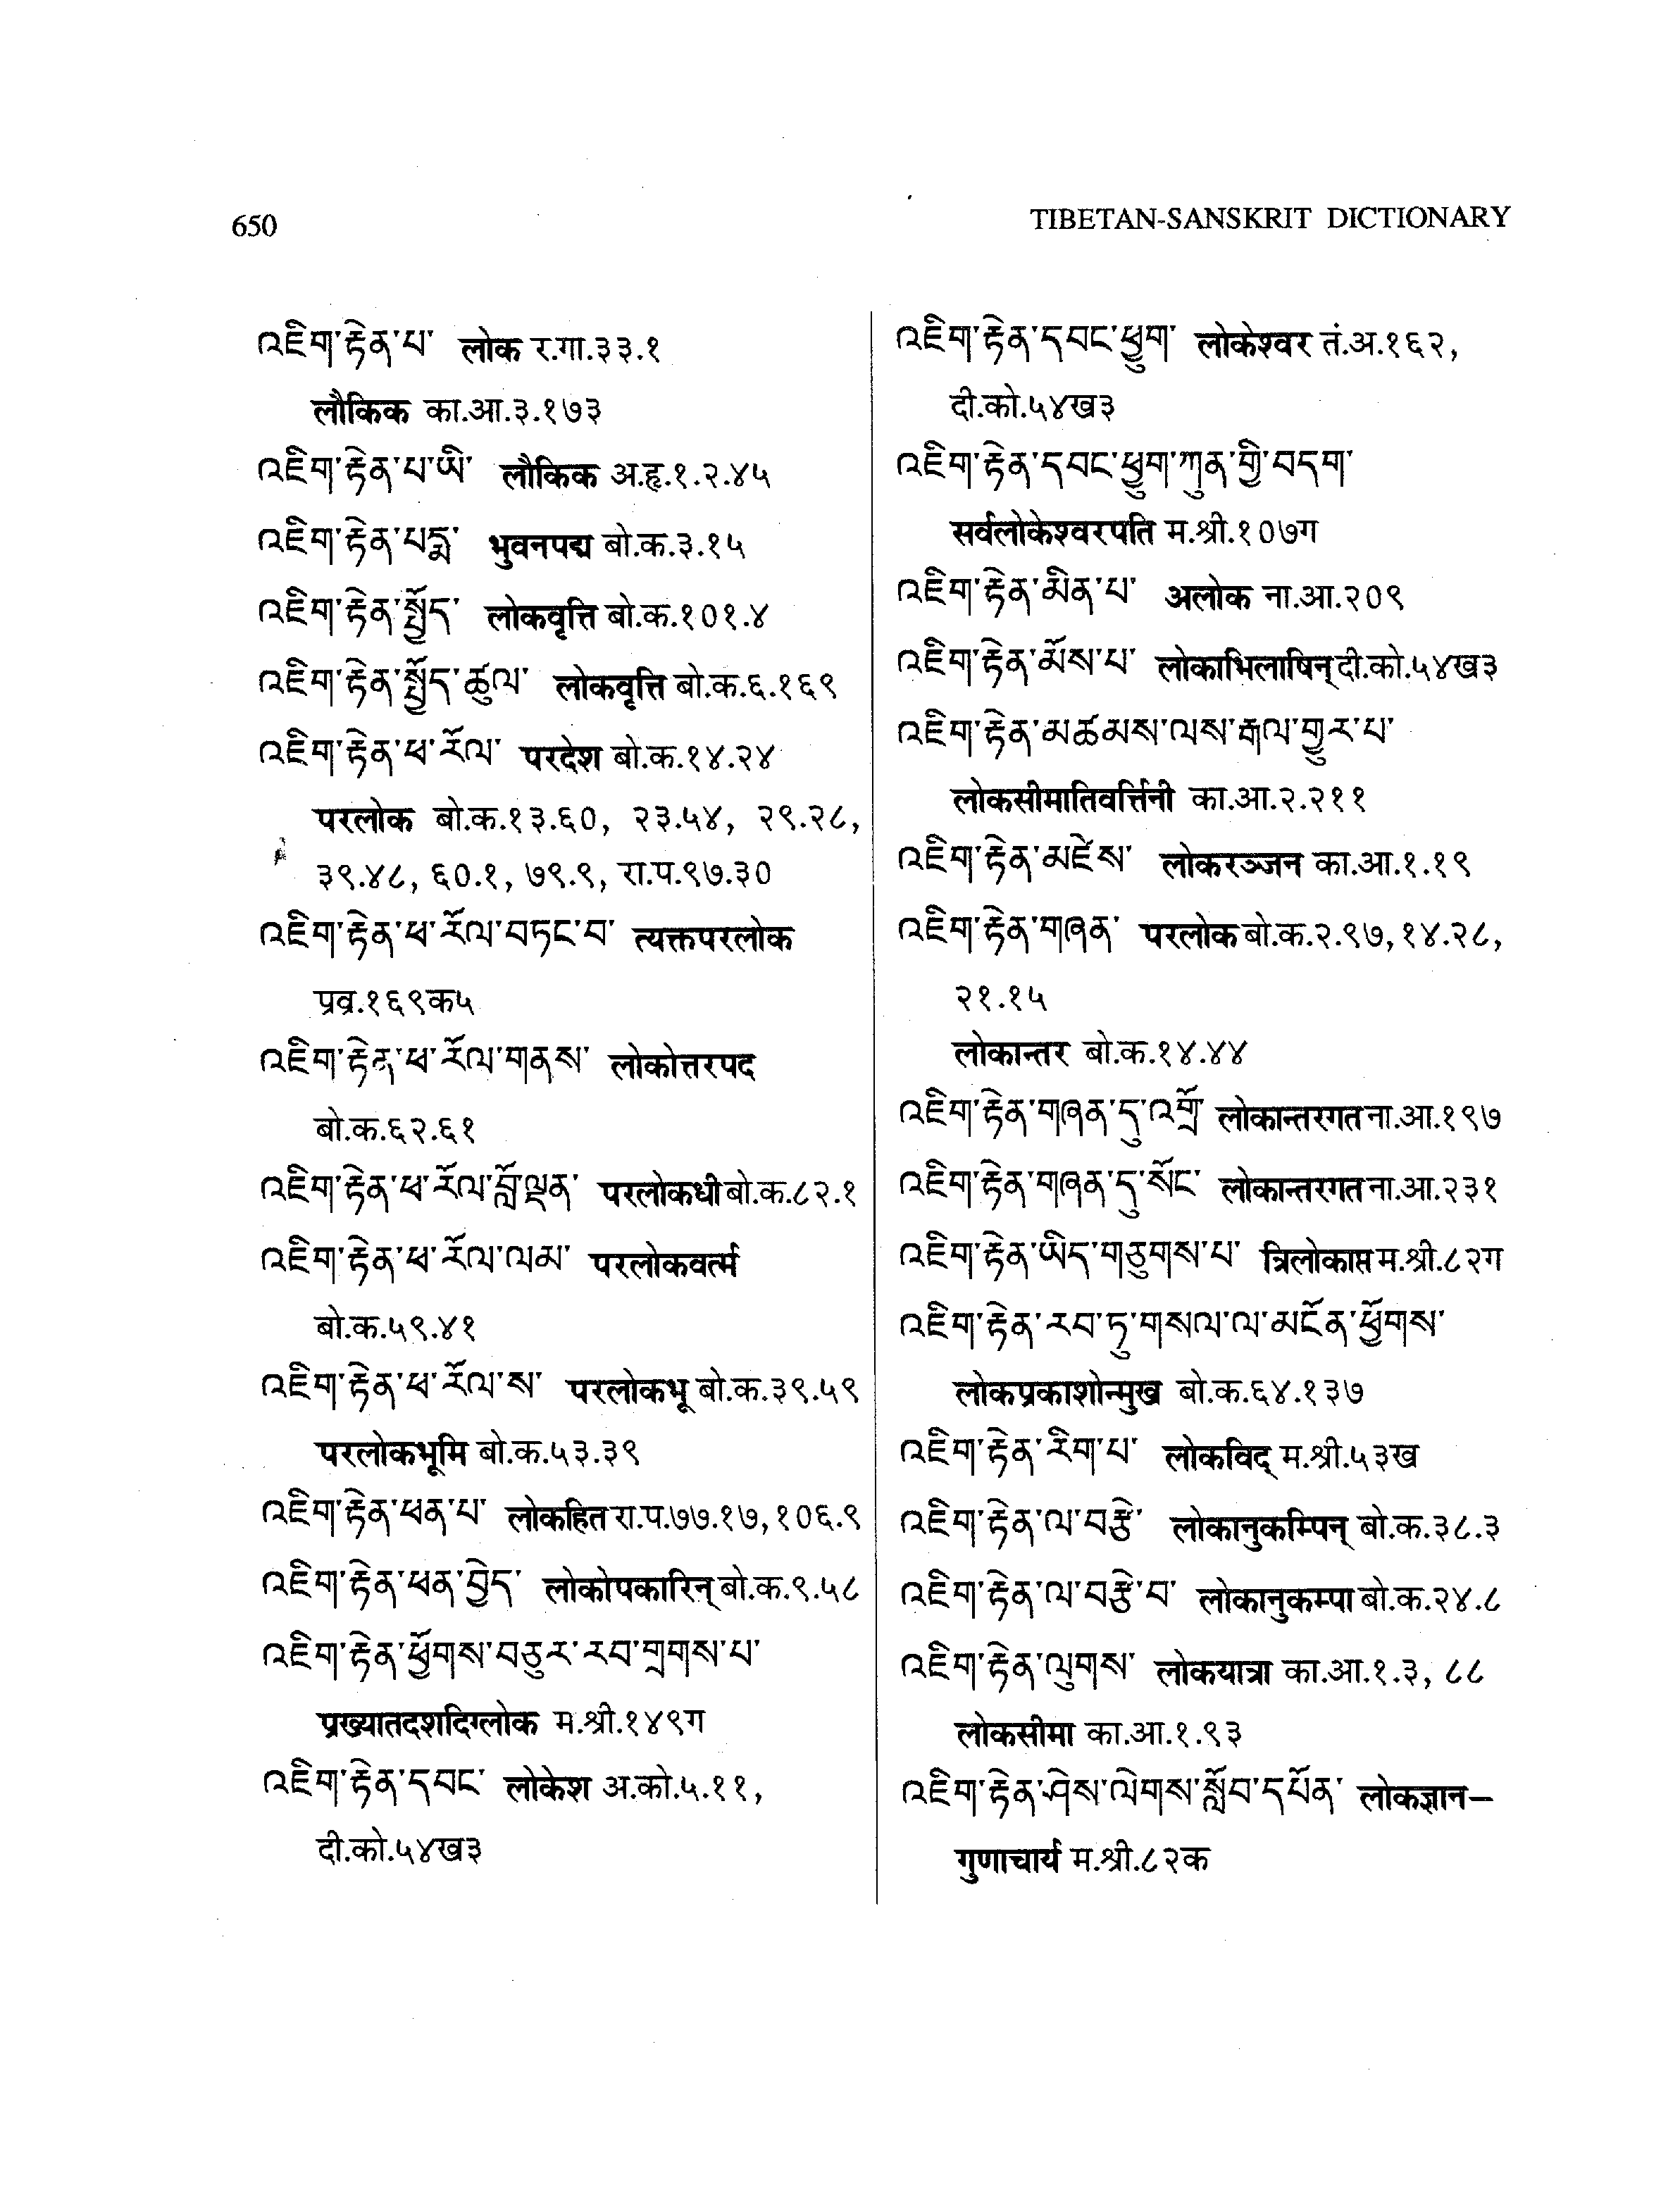 650
TIBETAN-SANSKRIT DICTIONARY
འཇིག་རྟེན་པ་ लोक र.गा.३३.१
लौकिक का.आ.३.१७३
འཇིག་རྟེན་པ་ཡི་ लौकिक अ.हृ.१.२.४५
འཇིག་རྟེན་པདྨ་ भुवनपद्म बो.क.३.१५
འཇིག་རྟེན་སྤྱོད་ लोकवृत्ति बो.क.१०१.४
འཇིག་རྟེན་སྤྱོད་ཚུལ་ लोकवृत्ति बो.क.६.१६९
འཇིག་རྟེན་ཕ་རོལ་ परदेश बो.क.१४.२४
परलोक बो.क.१३.६०, २३.५४, २९.२८,
३९.४८, ६०.१, ७९.९, रा.प.९७.३०
འཇིག་རྟེན་ཕ་རོལ་བཏང་བ་ त्यक्तपरलोक
प्रव्र.१६९क५
འཇིག་རྟེན་ཕ་རོལ་གནས་ लोकोत्तरपद
बो.क.६२.६१
འཇིག་རྟེན་ཕ་རོལ་བློ་ལྡན་ परलोकधी बो.क.८२.१
འཇིག་རྟེན་ཕ་རོལ་ལམ་ परलोकवर्त्म
बो.क.५९.४१
འཇིག་རྟེན་ཕ་རོལ་ས་ परलोकभू बो.क.३९.५९
परलोकभूमि बो.क.५३.३९
འཇིག་རྟེན་ཕན་པ་ लोकहित रा.प.७७.१७, १०६.९
འཇིག་རྟེན་ཕན་བྱེད་ लोकोपकारिन् बो.क.९.५८
འཇིག་རྟེན་ཕྱོགས་བཅུར་རབ་གྲགས་པ་
प्रख्यातदशदिग्लोक म.श्री.१४९ग
འཇིག་རྟེན་དབང་ लोकेश अ.को.५.११,
दी.को.५४ख३
འཇིག་རྟེན་དབང་ཕྱུག་ लोकेश्वर तं.अ.१६२,
दी.को.५४ख३
འཇིག་རྟེན་དབང་ཕྱུག་ཀུན་གྱི་བདག་
सर्वलोकेश्वरपति म.श्री.१०७ग
འཇིག་རྟེན་མིན་པ་ अलोक ना.आ.२०९
འཇིག་རྟེན་མོས་པ་ लोकाभिलाषिन् दी.को.५४ख३
འཇིག་རྟེན་མཚམས་ལས་རྒལ་གྱུར་པ་
लोकसीमातिवर्त्तिनी का.आ.२.२११
འཇིག་རྟེན་མཛེས་ लोकरञ्जन का.आ.१.१९
འཇིག་རྟེན་གཞན་ परलोक बो.क.२.९७, १४.२८,
२१.१५
लोकान्तर बो.क.१४.४४
འཇིག་རྟེན་གཞན་དུ་འགྲོ་ लोकान्तरगत ना.आ.१९७
འཇིག་རྟེན་གཞན་དུ་སོང་ लोकान्तरगत ना.आ.२३१
འཇིག་རྟེན་ཡིད་གཅུགས་པ་ त्रिलोकाप्त म.श्री.८२ग
འཇིག་རྟེན་རབ་ཏུ་གསལ་ལ་མངོན་ཕྱོགས་
लोकप्रकाशोन्मुख बो.क.६४.१३७
འཇིག་རྟེན་རིག་པ་ लोकविद् म.श्री.५३ख
འཇིག་རྟེན་ལ་བརྩེ་ लोकानुकम्पिन् बो.क.३८.३
འཇིག་རྟེན་ལ་བརྩེ་བ་ लोकानुकम्पा बो.क.२४.८
འཇིག་རྟེན་ལུགས་ लोकयात्रा का.आ.१.३, ८८
लोकसीमा का.आ.१.९३
འཇིག་རྟེན་ཤེས་ལེགས་སློབ་དཔོན་ लोकज्ञान–
गुणाचार्य म.श्री.८२क